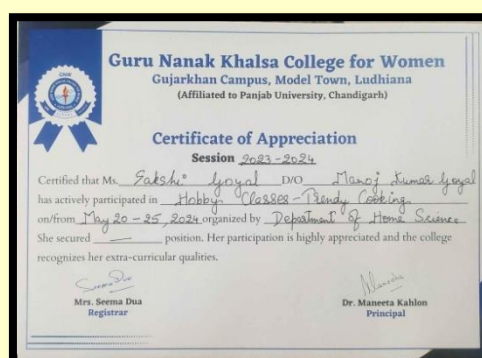 Guru Nanak Khalsa College for Women
Gujarkhan Campus, Model Town, Ludhiana
(Affiliated to Panjab University, Chandigarh)
Certificate of Appreciation
Session 2023-2024
Certified that Ms. Sakshi Goyal D/O Manoj Kumar Goyal
has actively participated in Hobby Classes - Trendy Cooking
on/from May 20-25, 2024 organized by Department of Home Science
She secured — position. Her participation is highly appreciated and the college
recognizes her extra-curricular qualities.
Seema Dua
Mrs. Seema Dua
Registrar
Maneeta
Dr. Maneeta Kahlon
Principal